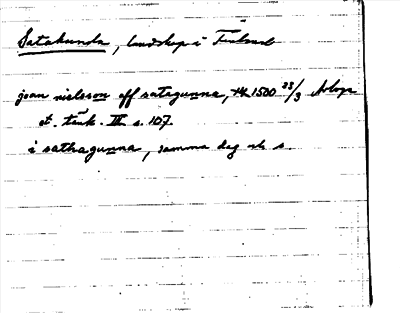 Satakunda, landskap i Finland
joan nielsson aff satagunna, 1500 23/3 Arboga
st. tänk. III s. 107.
i sathagunna, samma dag och s.